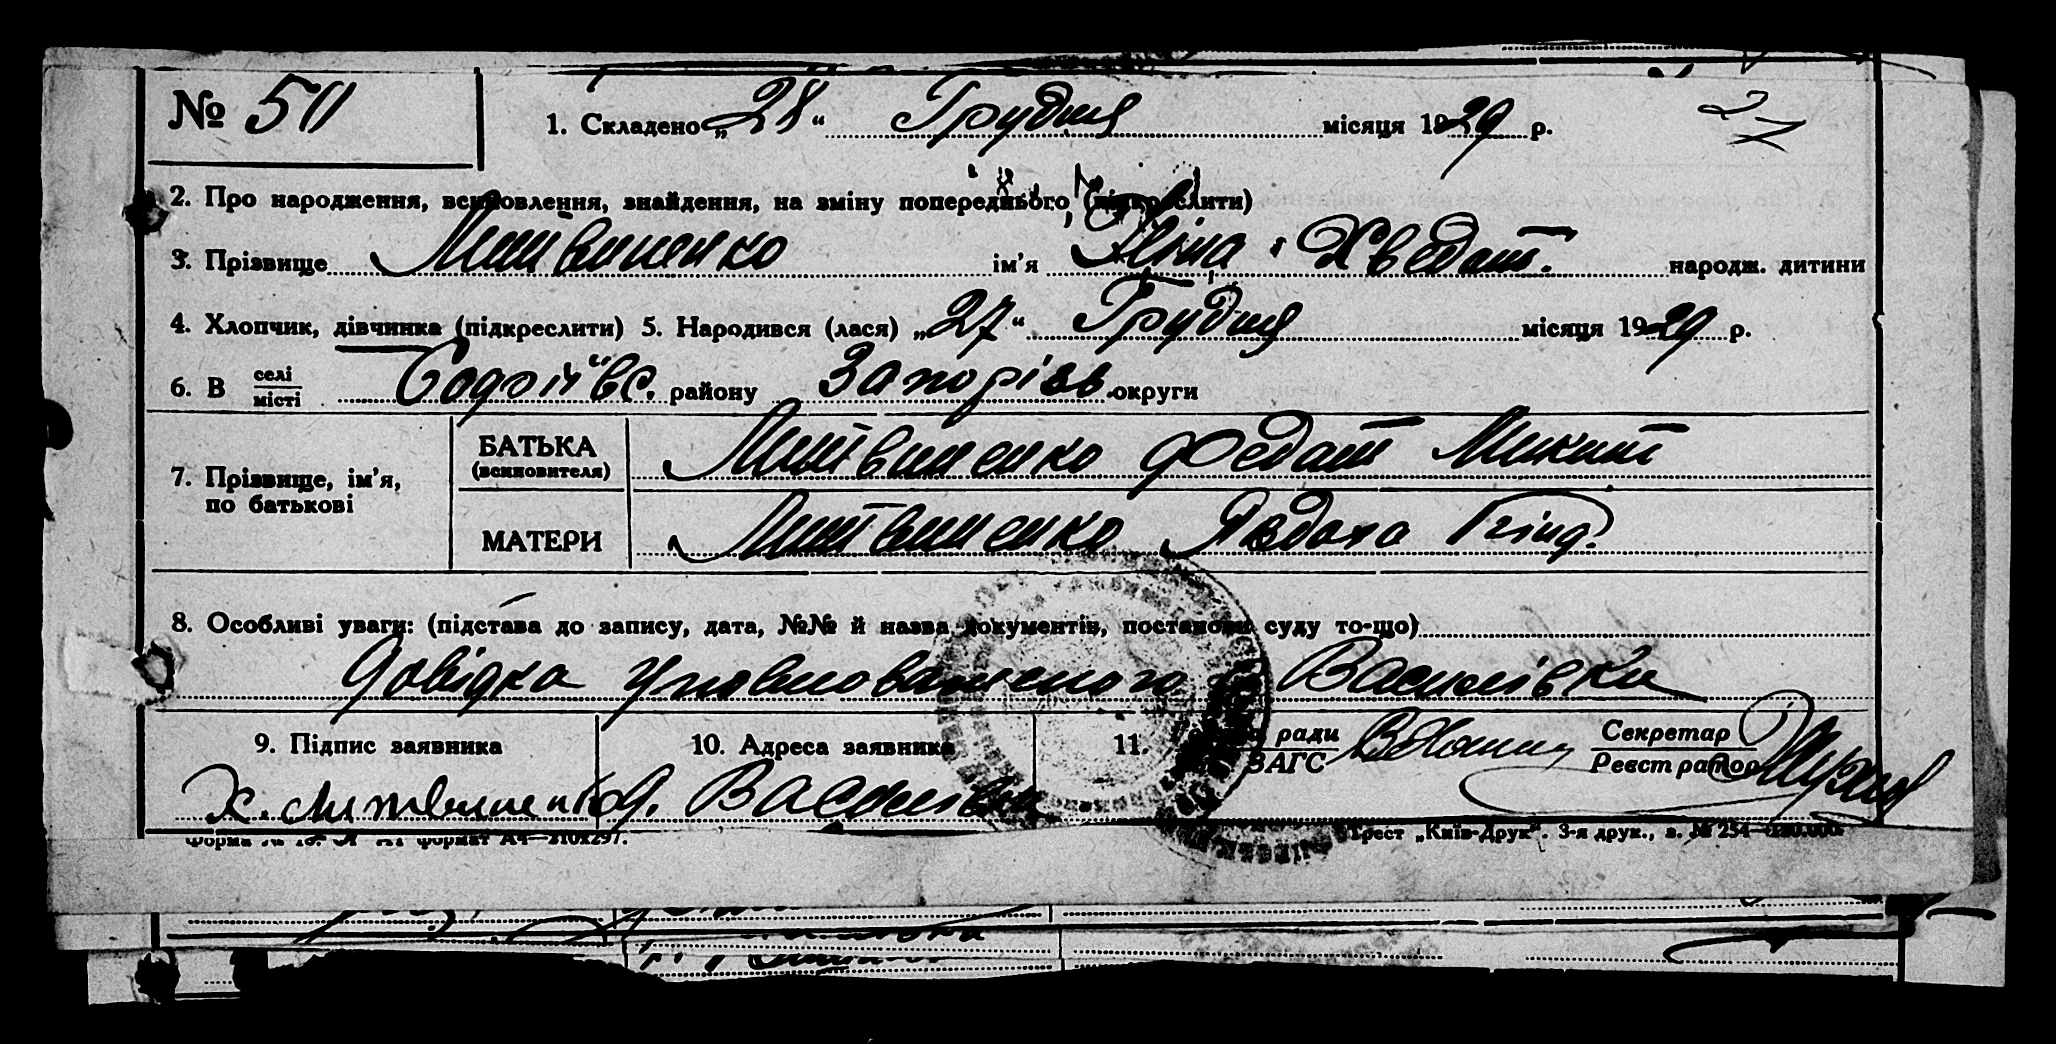 № 511 1. Складено „28“ Грудня місяця 1929 р.
27
2. Про народження, всиновлення, знайдення, на зміну попереднього (підкреслити)
3. Прізвище Литвиненко ім'я Ніна Хведот. народж. дитини
4. Хлопчик, дівчинка (підкреслити) 5. Народився (лася) „27“ Грудня місяця 1929 р.
6. В селі місті Софіївс. району Запорізь. округи
7. Прізвище, ім'я, по батькові
БАТЬКА (всиновителя) Литвиненко Федот Микит
МАТЕРИ Литвиненко Явдоха
8. Особливі уваги: (підстава до запису, дата, №№ й назва документів, постанови суду то-що)
Довідка Уповноваженого Василівки
9. Підпис заявника 10. Адреса заявника 11. ради ЗАГС Секретар Реєстратор
Х. Литвиненко с. Василівка
Форма № формат А4—210х297. Трест „Київ-Друк“. 3-я друк., з. № 254—